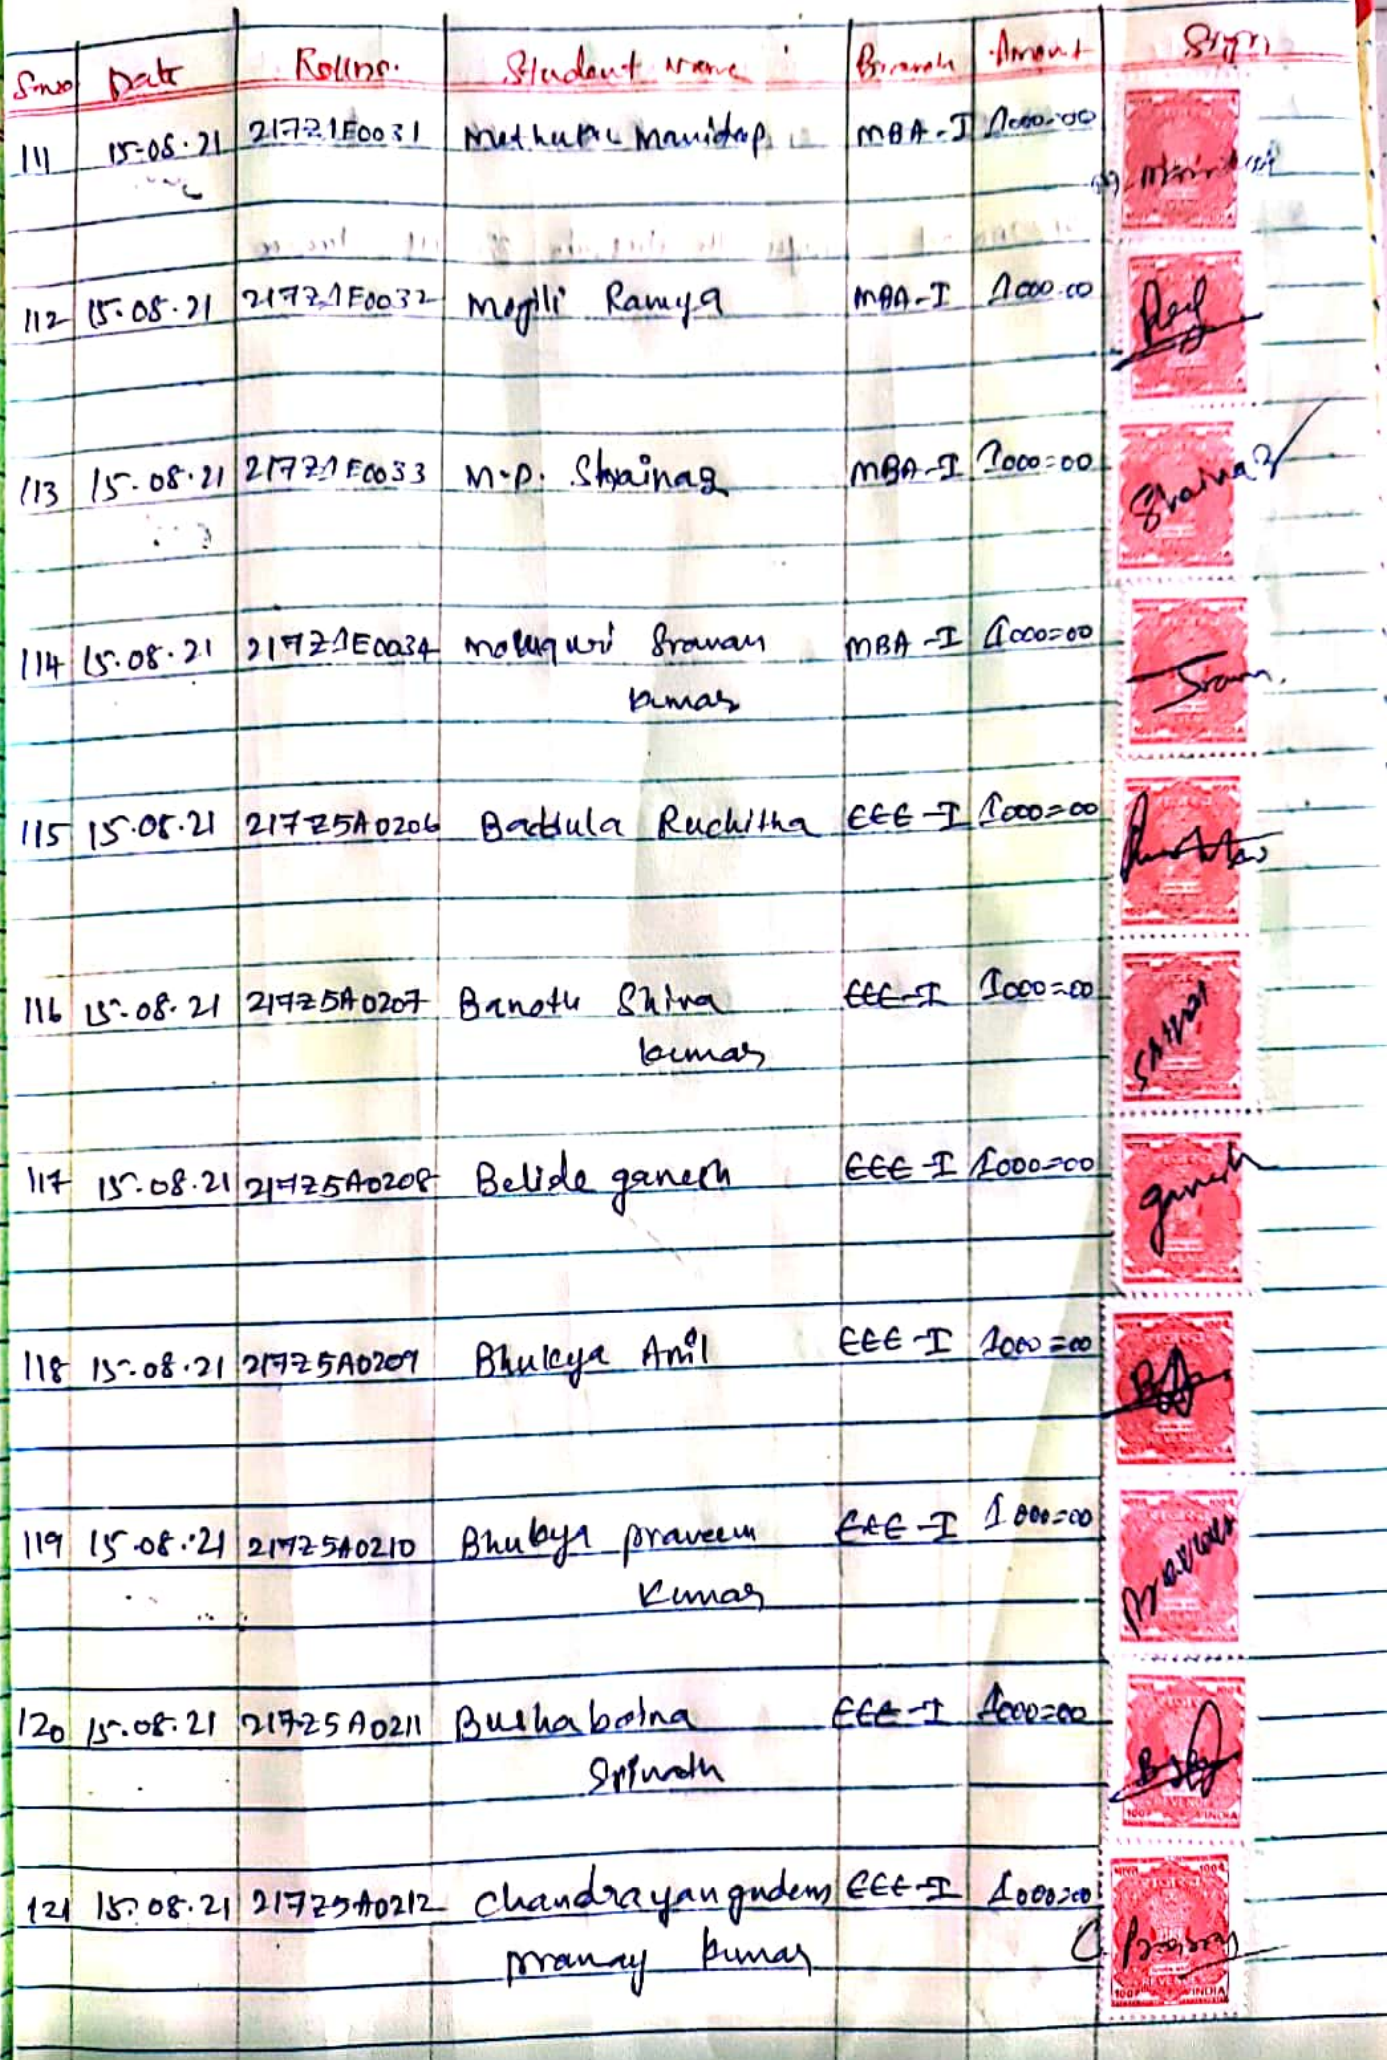 S.no Date Rollno. Student Name Branch Amount Sign
111 15-08-21 217Z1E0031 MBA-I 1000-00
112 15.08.21 217Z1E0032 Mogili Ramya MBA-I 1000.00
113 15-08.21 217Z1E0033 M.P. Shainaz MBA-I 1000=00 Shainaz
114 15.08.21 217Z1E0034 Moluguri Sravan MBA-I 1000=00
kumar
115 15.08.21 217Z5A0206 Battula Ruchitha EEE-I 1000=00
116 15-08.21 217Z5A0207 Banoth Shiva EEE-I 1000=00
kumar
117 15-08.21 217Z5A0208 Belide ganesh EEE-I 1000=00 ganesh
118 15-08.21 217Z5A0209 Bhukya Anil EEE-I 1000=00
119 15.08.21 217Z5A0210 Bhukya praveen EEE-I 1000=00
Kumar
120 15-08.21 217Z5A0211 EEE-I 1000=00
Srinath
121 15.08.21 217Z5A0212 Chandrayangudem EEE-I 1000=00
pranay kumar